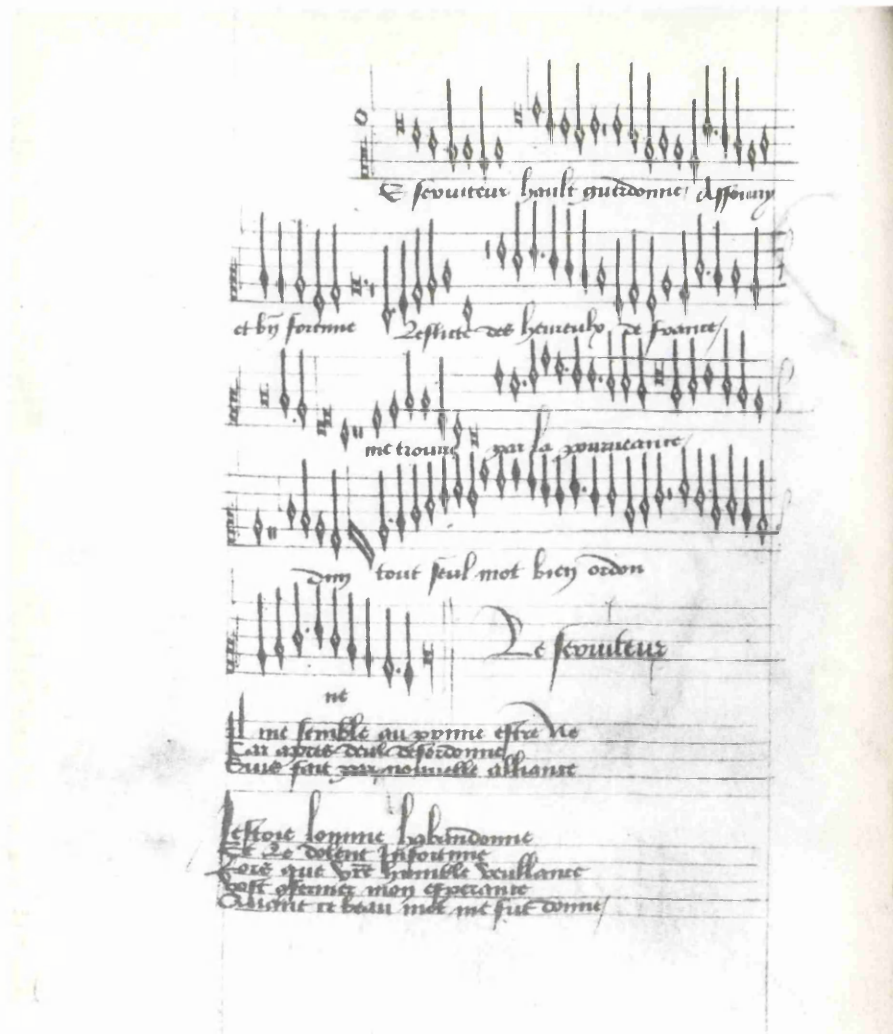 E serviteur hault guerdonne / Assouvy
et bn fortune Leslitte des heureulx de france /
me trouve par la pourveance /
Dun tout seul mot bien ordon
ne Le serviteur
Il me semble qu prime estre ne
Car apres deul desordonne
Suis fait par nouvelle alliance
Jestoie lomme habandonne
Et le dolent Infortune
Lors que vre humble veullance
vost confermer mon esperance
Quant ce beau mot me fut donne /